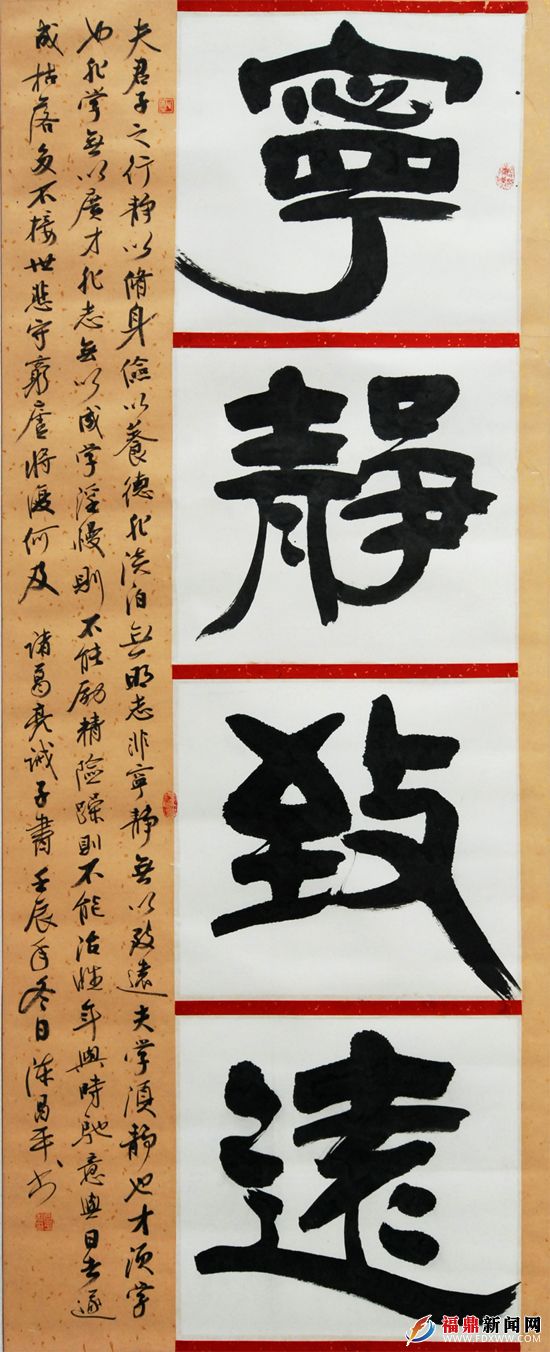 寧靜致遠
夫君子之行靜以脩身儉以養德非淡泊無明志非寧靜無以致遠夫學須靜也才須學
也非學無以廣才非志無以成學淫慢則不能励精險躁則不能治性年與時馳意與日去遂
成枯落多不接世悲守窮廬將復何及 諸葛亮誡子書 壬辰年冬日 陳昌平書
福鼎新闻网
WWW.FDXWW.COM